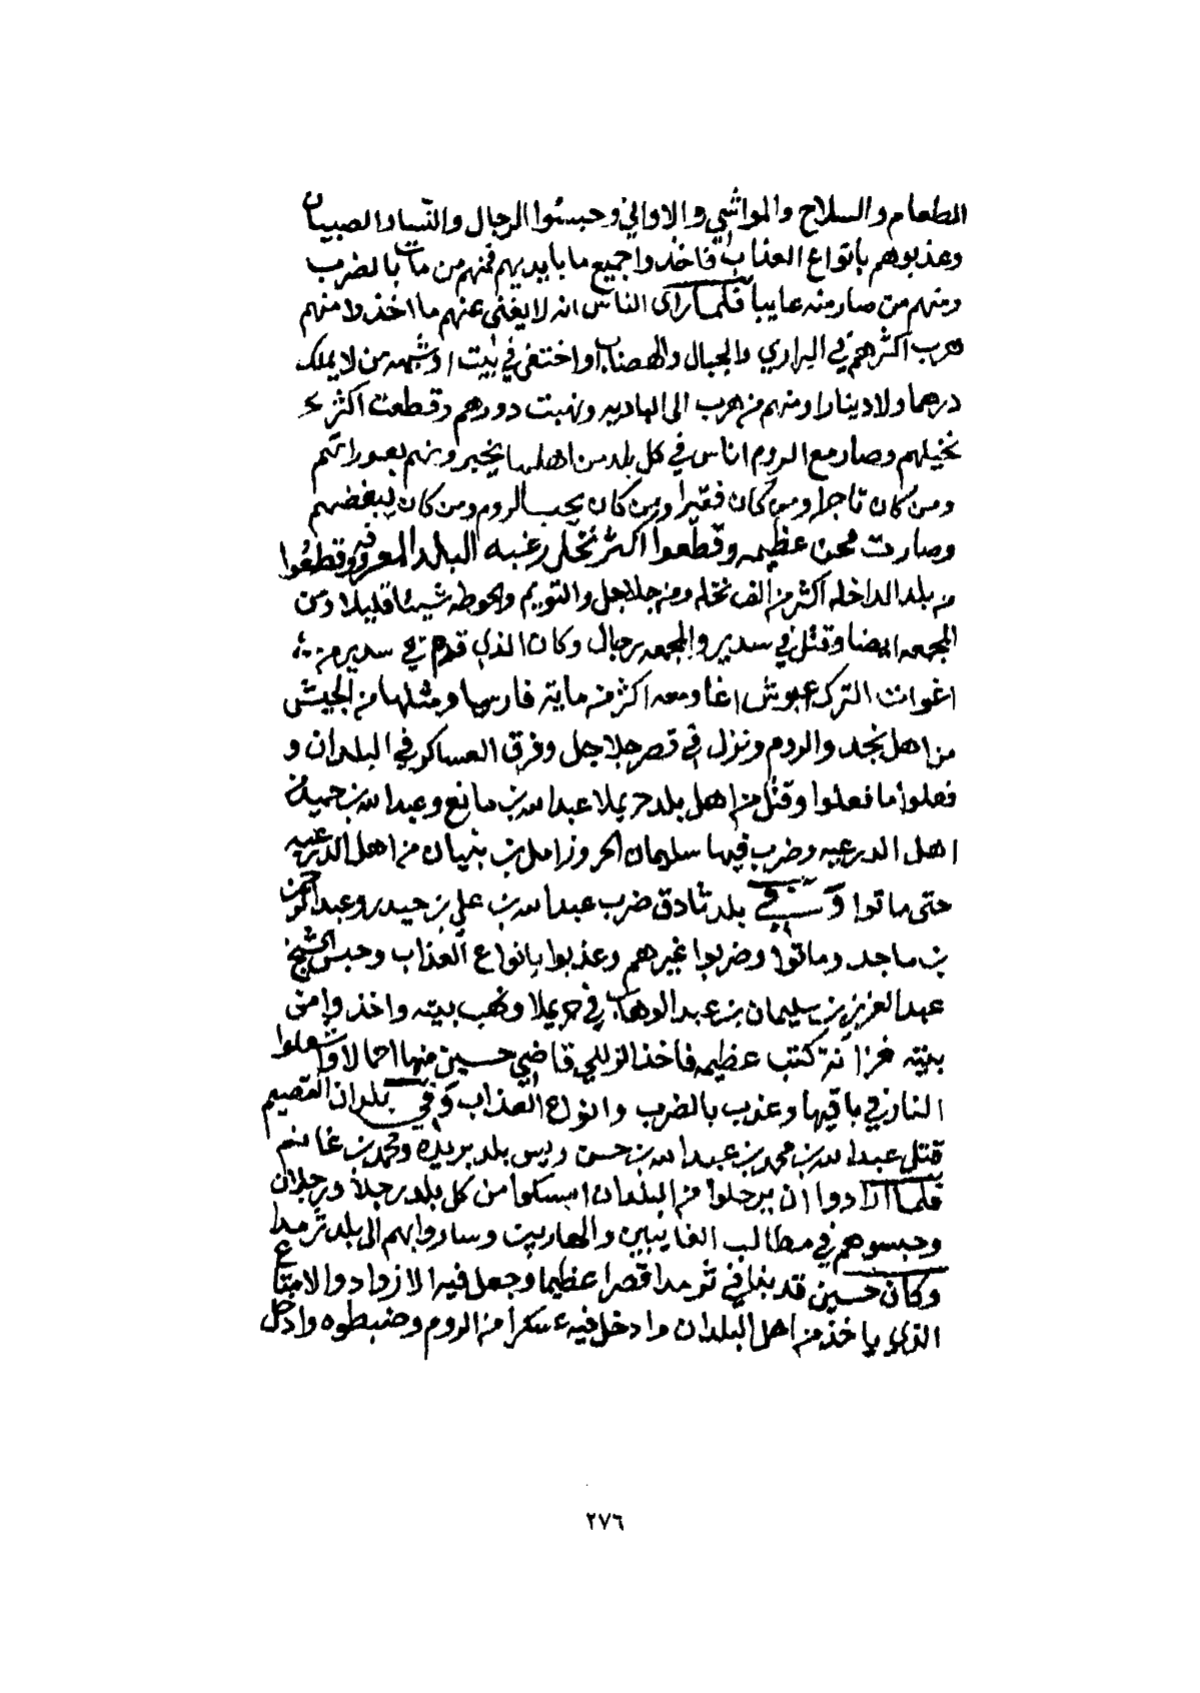 الطعام والسلاح والمواشي والاواني وحبسوا الرجال والنساء والصبيان
وعذبوهم بانواع العذاب فاخذوا جميع ما بايديهم فمنهم من مات بالضرب
ومنهم من صار منه عايبا فلما راى الناس انه لا يغني عنهم ما اخذوا منهم
هرب اكثرهم في البراري والجبال والهضاب او اختفى في بيت او شبهه من لا يملك
درهما ولا دينارا ومنهم من هرب الى الباديه ونهبت دورهم وقطعت اكثر
نخيلهم وصار مع الروم اناس في كل بلد من اهلها يخبرونهم بعوراتهم
ومن كان تاجرا ومن كان فقيرا ومن كان يحب الروم ومن كان يبغضهم
وصارت محن عظيمه وقطعوا اكثر نخل رغبه البلد المعروفه وقطعوا
من بلد الداخله اكثر من الف نخله ومن جلاجل والتويم والحوطه شيئا قليلا ومن
المجمعه ايضا وقتل في سدير والمجمعه رجال وكان الذي قدم في سدير من
اغوات الترك عبوش اغا ومعه اكثر من ماية فارس او مثلها من الجيش
من اهل نجد والروم ونزل في قصر جلاجل وفرق العساكر في البلدان و
فعلوا ما فعلوا وقتل من اهل بلد حريملا عبدالله بن مانع وعبدالله بن حميد من
اهل الدرعيه وضرب فيها سليمان الحر وزامل بن بنيان من اهل الدرعيه
حتى ماتوا وفي بلد ثادق ضرب عبدالله بن علي بن حيدر وعبدالرحمن
بن ماجد وماتوا وضربوا غيرهم وعذبوا بانواع العذاب وحبس الشيخ
عبدالعزيز بن سليمان بن عبدالوهاب في حريملا ونهب بيته واخذوا من
بيته خزانة كتب عظيمه فاخذ الزللي قاضي حسين منها احمالا واشعلوا
النار في باقيها وعذب بالضرب وانواع العذاب وفي بلدان القصيم
قتل عبدالله بن محمد بن عبدالله بن حسن ريس بلد بريده ومحمد بن غانم
فلما ارادوا ان يرحلوا من البلدان امسكوا من كل بلد رجلا ورجلان
وحبسوهم في مطالب الغايبين والهاربين وساروا بهم الى بلد ثرمدا
وكان حسين قد بنا في ثرمدا قصرا عظيما وجعل فيه الازواد والامتاع
الذي ياخذ من اهل البلدان وادخل فيه عسكرا من الروم وضبطوه وادخل
٢٧٦